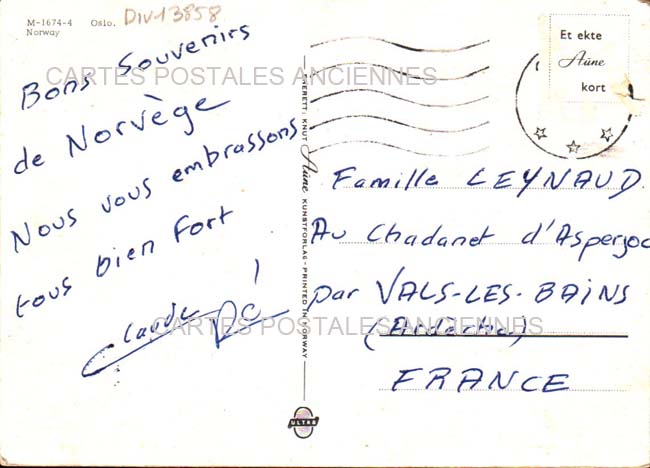 M-1674-4 Oslo.
Norway
DIV13858
Bons Souvenirs
de Norvège
Nous vous embrassons
tous bien fort
Claude
CARTES POSTALES ANCIENNES
CARTES POSTALES ANCIENNES
KNUT Aune KUNSTFORLAG - PRINTED IN NORWAY
ULTRA
Et ekte
Aune
kort
Famille LEYNAUD
Au Chadanet d'Asperjoc
par VALS-LES-BAINS
(Ardèche)
FRANCE